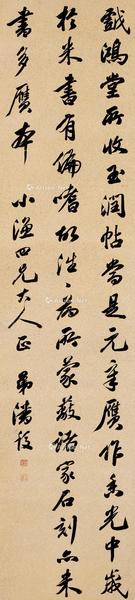 戲鴻堂所收玉潤帖當是元章贋作香光中歲
於米書有偏嗜故往々為所蒙蔽諸家石刻亦米
書多贋本
小漁四兄大人正 弟潘